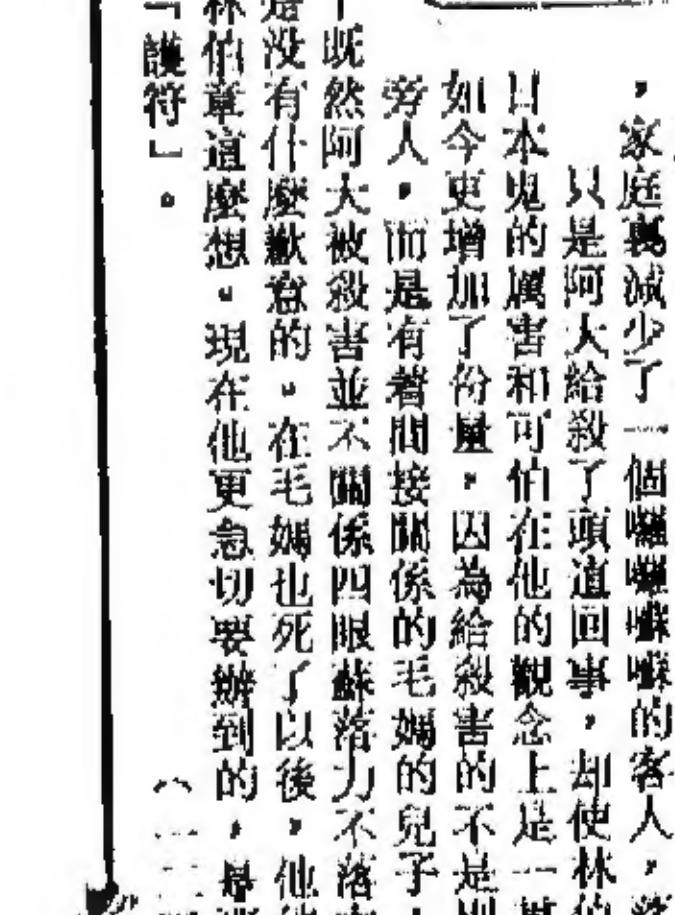 ，家庭裏減少了一個囉囉嗦嗦的客人，
只是阿大給殺了頭這回事，却使林伯
日本鬼的厲害和可怕在他的觀念上是一
如今更增加了份量，因為給殺害的不是別
旁人，而是有着間接關係的毛媽的兒子
既然阿大被殺害並不關係四眼蘇落力不落
是沒有什麼歉意的。在毛媽也死了以後，他
林伯章這麼想。現在他更急切要辦到的，是
「護符」。